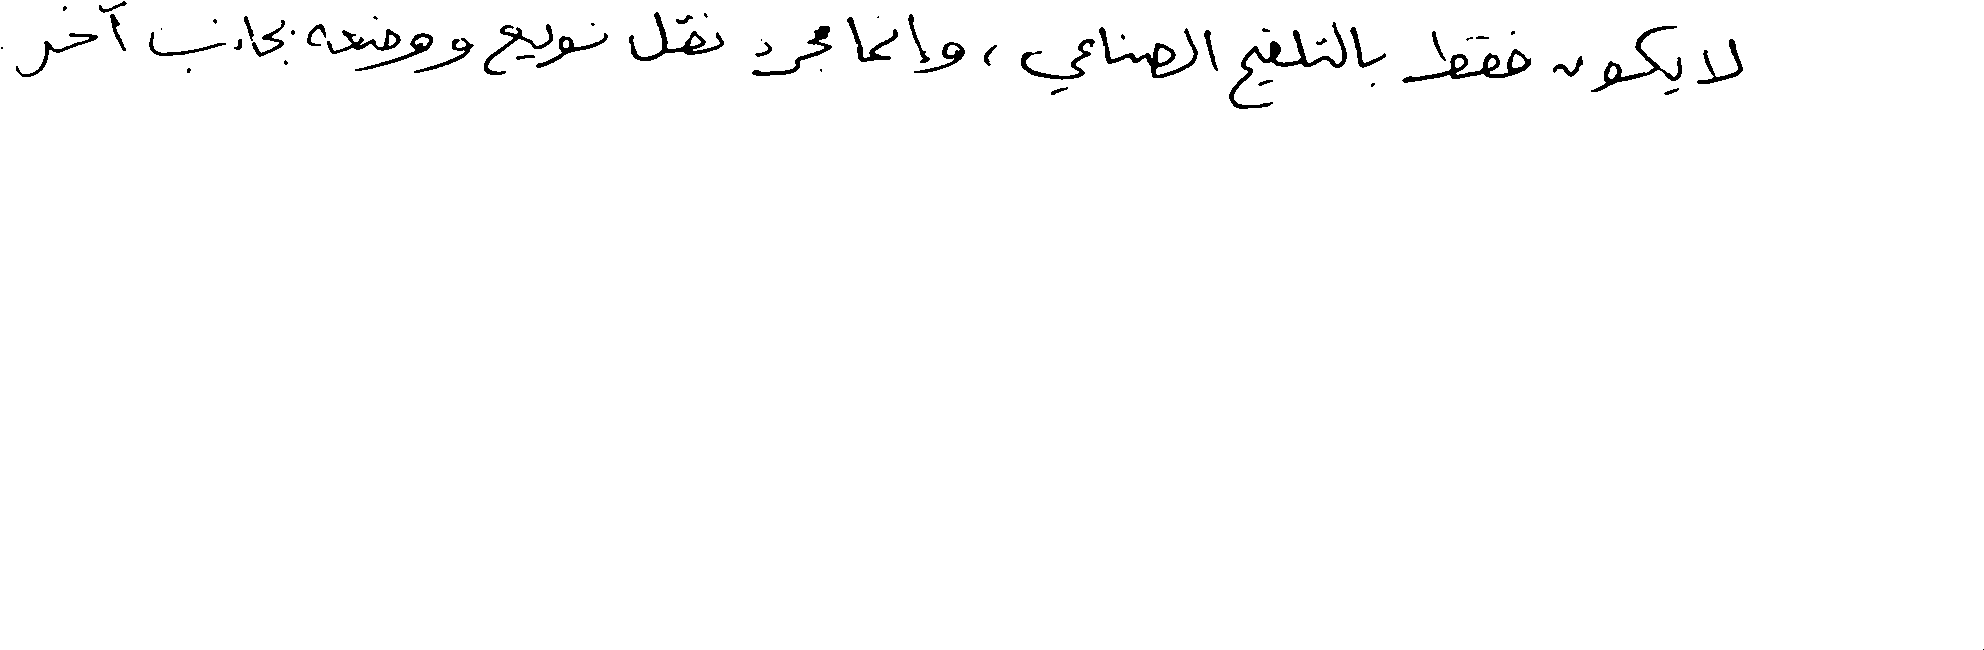 لا يكون فقط بالتلقيح الصناعي ، وإنما مجرد نقل نويع ووضعه بجانب آخر